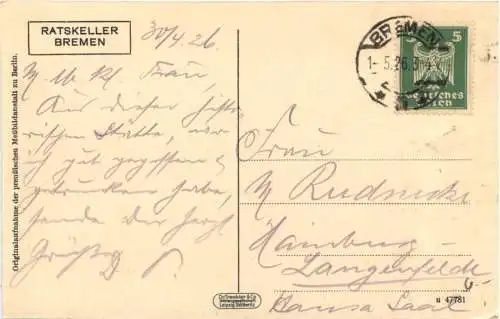 RATSKELLER
BREMEN
30/4.26
Frau,
Aus dieser histo-
rischen Stätte, wo
ich gut gegessen &
getrunken habe,
sende der herzl.
Grüße
Originalaufnahme der preußischen Meßbildanstalt zu Berlin.
BREMEN
1. 5.26.3
5
Deutsches
Reich
Frau
M Rudnicki
Hamburg-
Langenfelde
Hansa Saal
u 47781